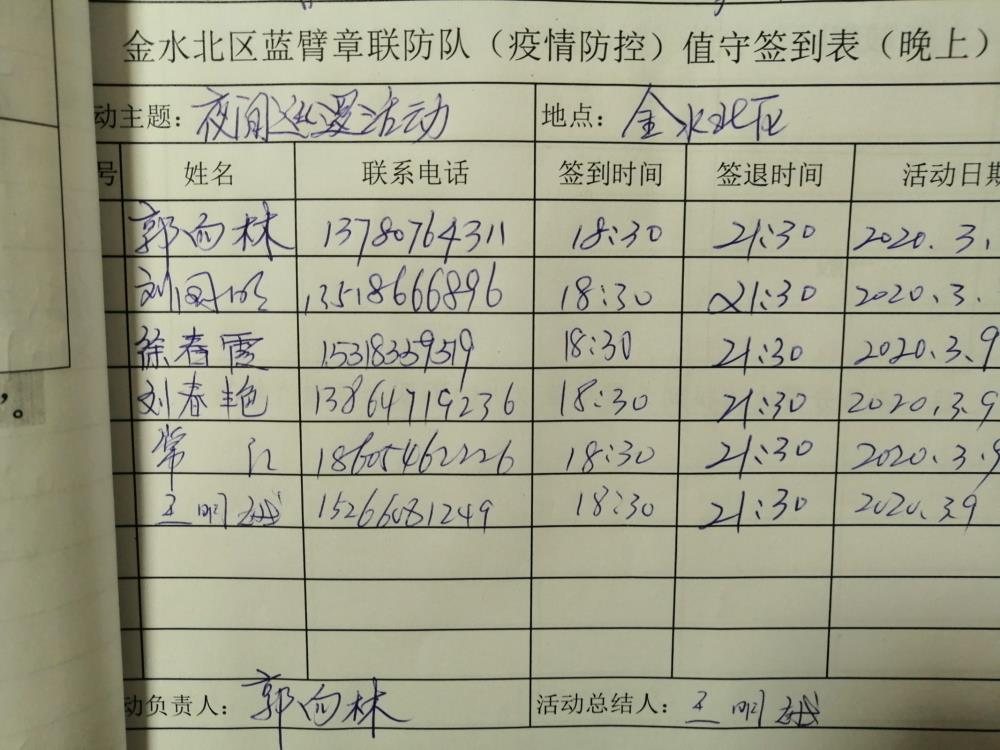 金水北区蓝臂章联防队（疫情防控）值守签到表（晚上）
动主题： 夜间巡逻活动 地点： 金水北区
号 姓名 联系电话 签到时间 签退时间 活动日期
郭向林 13780764311 18:30 21:30 2020.3.
刘国明 13518666896 18:30 21:30 2020.3.
徐春霞 15318359519 18:30 21:30 2020.3.9
刘春艳 13864719236 18:30 21:30 2020.3.9
常 江 18605462226 18:30 21:30 2020.3.9
王明 15266081249 18:30 21:30 2020.3.9
动负责人： 郭向林 活动总结人： 王明